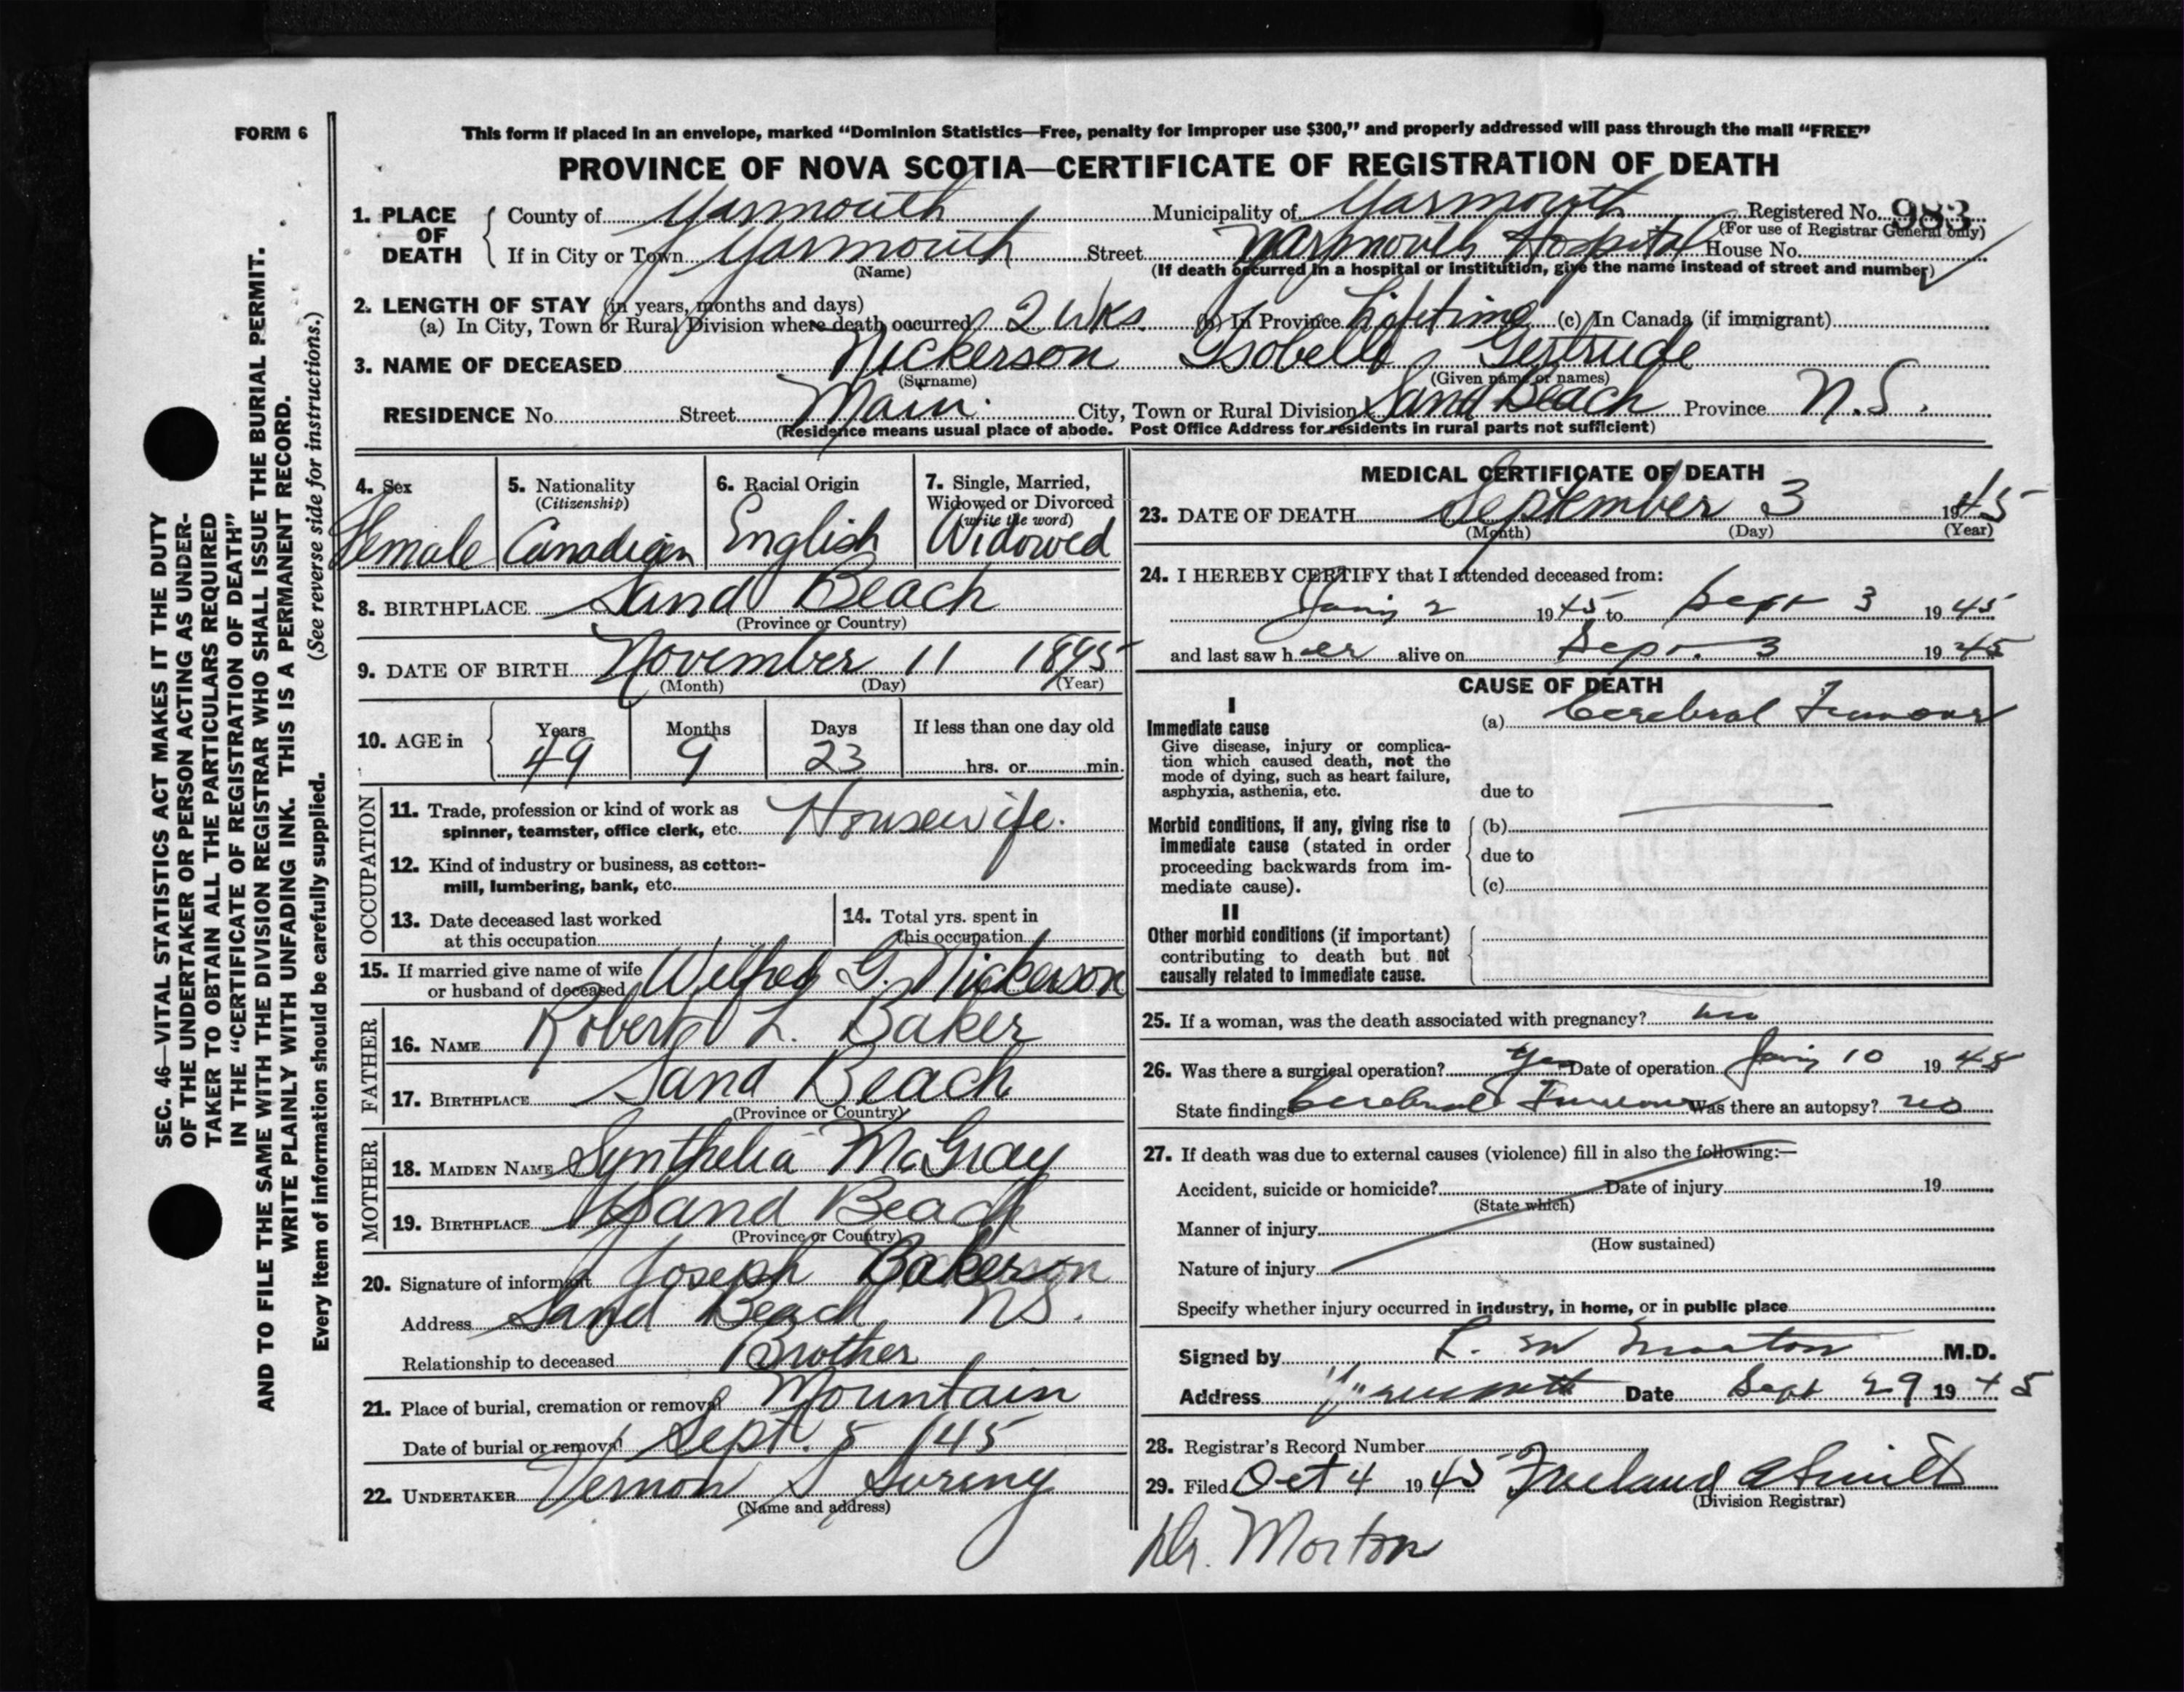 FORM 6
This form if placed in an envelope, marked "Dominion Statistics—Free, penalty for improper use $300," and properly addressed will pass through the mail "FREE"
PROVINCE OF NOVA SCOTIA—CERTIFICATE OF REGISTRATION OF DEATH
1. PLACE OF DEATH
County of Yarmouth Municipality of Yarmouth Registered No. 983
(For use of Registrar General only)
If in City or Town Yarmouth Street Yarmouth Hospital House No.
(Name) (If death occurred in a hospital or institution, give the name instead of street and number)
2. LENGTH OF STAY (in years, months and days)
(a) In City, Town or Rural Division where death occurred 2 wks. (b) In Province Lifetime (c) In Canada (if immigrant)
3. NAME OF DECEASED Nickerson Isobelle Gertrude
(Surname) (Given name or names)
RESIDENCE No. Street Main. City, Town or Rural Division Sand Beach Province N.S.
(Residence means usual place of abode. Post Office Address for residents in rural parts not sufficient)
4. Sex Female
5. Nationality (Citizenship) Canadian
6. Racial Origin English
7. Single, Married, Widowed or Divorced (write the word) Widowed
8. BIRTHPLACE Sand Beach
(Province or Country)
9. DATE OF BIRTH November 11 1895
(Month) (Day) (Year)
10. AGE in Years 49 Months 9 Days 23 If less than one day old hrs. or min.
OCCUPATION
11. Trade, profession or kind of work as spinner, teamster, office clerk, etc. Housewife.
12. Kind of industry or business, as cotton-mill, lumbering, bank, etc.
13. Date deceased last worked at this occupation
14. Total yrs. spent in this occupation
15. If married give name of wife or husband of deceased Wilfred G. Nickerson
FATHER
16. NAME Robert L. Baker
17. BIRTHPLACE Sand Beach
(Province or Country)
MOTHER
18. MAIDEN NAME Synthelia McGray
19. BIRTHPLACE Sand Beach
(Province or Country)
20. Signature of informant Joseph Baker
Address Sand Beach N.S.
Relationship to deceased Brother
21. Place of burial, cremation or removal Mountain
Date of burial or removal Sept. 5 /45
22. UNDERTAKER Vernon S
(Name and address)
MEDICAL CERTIFICATE OF DEATH
23. DATE OF DEATH September 3 1945
(Month) (Day) (Year)
24. I HEREBY CERTIFY that I attended deceased from:
2 1945 to Sept 3 1945
and last saw her alive on Sept. 3 1945
CAUSE OF DEATH
I
Immediate cause
Give disease, injury or complication which caused death, not the mode of dying, such as heart failure, asphyxia, asthenia, etc.
(a) Cerebral Tumour
due to
Morbid conditions, if any, giving rise to immediate cause (stated in order proceeding backwards from immediate cause).
(b)
due to
(c)
II
Other morbid conditions (if important) contributing to death but not causally related to immediate cause.
25. If a woman, was the death associated with pregnancy? no
26. Was there a surgical operation? Yes Date of operation 10 1945
State findings Cerebral Tumour Was there an autopsy? no
27. If death was due to external causes (violence) fill in also the following:—
Accident, suicide or homicide? Date of injury 19
(State which)
Manner of injury
(How sustained)
Nature of injury
Specify whether injury occurred in industry, in home, or in public place
Signed by L. M Morton M.D.
Address Yarmouth Date Sept 29 1945
28. Registrar's Record Number
29. Filed Oct 4 1945 Freeland A Smith
(Division Registrar)
Dr. Morton
SEC. 46—VITAL STATISTICS ACT MAKES IT THE DUTY
OF THE UNDERTAKER OR PERSON ACTING AS UNDER-
TAKER TO OBTAIN ALL THE PARTICULARS REQUIRED
IN THE "CERTIFICATE OF REGISTRATION OF DEATH"
AND TO FILE THE SAME WITH THE DIVISION REGISTRAR WHO SHALL ISSUE THE BURIAL PERMIT.
WRITE PLAINLY WITH UNFADING INK. THIS IS A PERMANENT RECORD.
Every item of information should be carefully supplied. (See reverse side for instructions.)